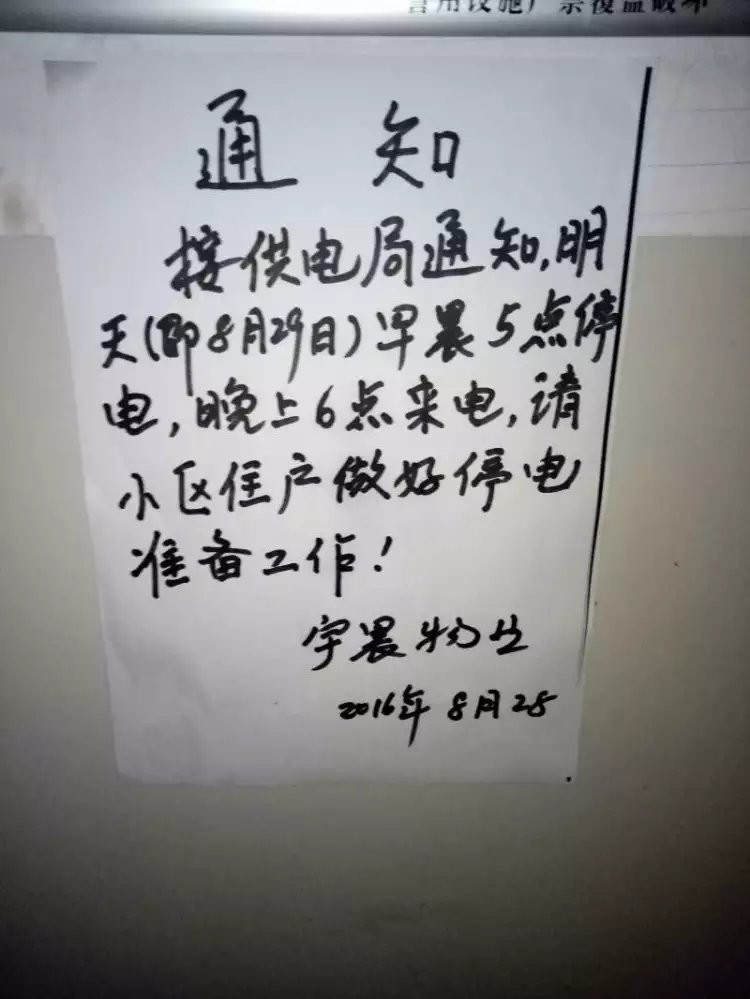 通知
接供电局通知,明
天(即8月29日)早晨5点停
电,晚上6点来电,请
小区住户做好停电
准备工作!
宇晨物业
2016年8月28